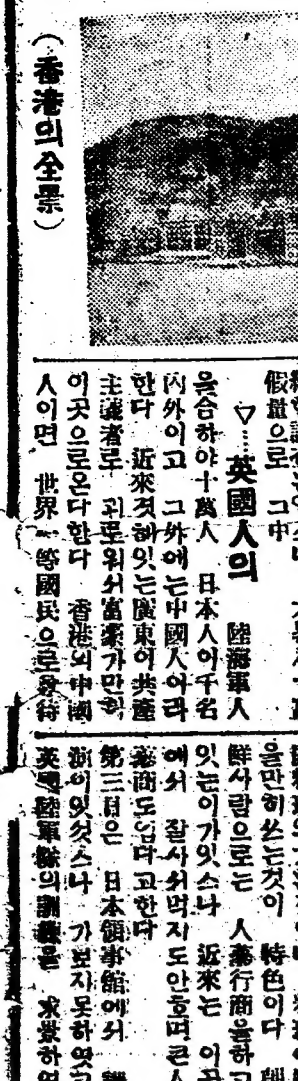 (香港의全景)
假量으로 그中
▽……英國人의 陸海軍人
을合하야十萬人 日本人이千名
內外이고 그外에는中國人이라
한다 近來것해잇는廣東이共產
主義者로 괴로워서富豪가만히
이곳으로온다한다 香港의中國
人이면 世界一等國民으로
을만히쓰는것이 特色이다
鮮사람으로는 人蔘行商을하고
잇는이가잇스나 近來는 이곳
에서 잘사서먹지도안호며큰人
蔘商도업다고한다
第三日은 日本領事館에서
이잇섯스나 가보지못하엿고
英國陸軍隊의訓練을 求景하엿